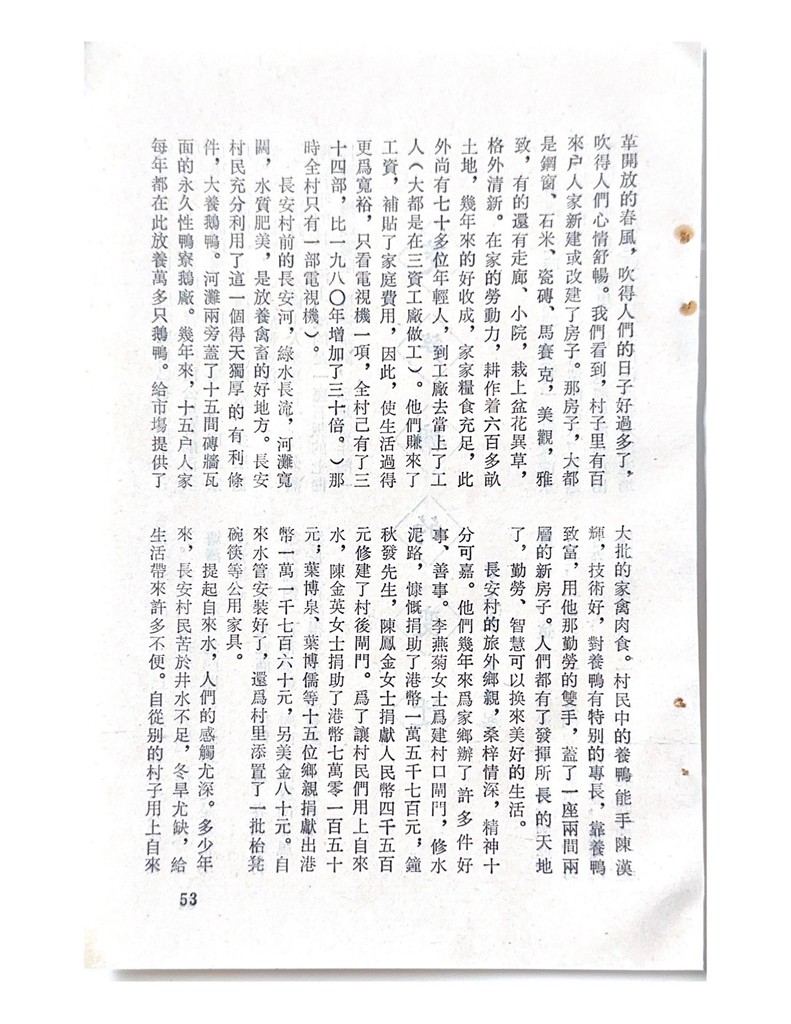 革開放的春風，吹得人們的日子好過多了，
吹得人們心情舒暢。我們看到，村子里有百
來户人家新建或改建了房子。那房子，大都
是鋼窗、石米、瓷磚、馬賽克，美觀，雅
致，有的還有走廊、小院，栽上盆花異草，
格外清新。在家的勞動力，耕作着六百多畝
土地，幾年來的好收成，家家糧食充足，此
外尚有七十多位年輕人，到工廠去當上了工
人（大都是在三資工廠做工）。他們賺來了
工資，補貼了家庭費用，因此，使生活過得
更爲寬裕，只看電視機一項，全村己有了三
十四部，比一九八〇年增加了三十倍。）那
時全村只有一部電視機）。
長安村前的長安河，綠水長流，河灘寬
闊，水質肥美，是放養禽畜的好地方。長安
村民充分利用了這一個得天獨厚的有利條
件，大養鵝鴨。河灘兩旁蓋了十五間磚牆瓦
面的永久性鴨寮鵝廠。幾年來，十五户人家
每年都在此放養萬多只鵝鴨。給市場提供了
大批的家禽肉食。村民中的養鴨能手陳漢
輝，技術好，對養鴨有特別的專長，靠養鴨
致富，用他那勤勞的雙手，蓋了一座兩間兩
層的新房子。人們都有了發揮所長的天地
了，勤勞、智慧可以換來美好的生活。
長安村的旅外鄉親，桑梓情深，精神十
分可嘉。他們幾年來爲家鄉辦了許多件好
事、善事。李燕菊女士爲建村口閘門，修水
泥路，慷慨捐助了港幣一萬五千七百元，鐘
秋發先生，陳鳳金女士捐獻人民幣四千五百
元修建了村後閘門。爲了讓村民們用上自來
水，陳金英女士捐助了港幣七萬零一百五十
元；葉博泉、葉博儒等十五位鄉親捐獻出港
幣一萬一千七百六十元，另美金八十元。自
來水管安裝好了，還爲村里添置了一批枱凳
碗筷等公用家具。
提起自來水，人們的感觸尤深。多少年
來，長安村民苦於井水不足，冬旱尤缺，給
生活帶來許多不便。自從別的村子用上自來
53